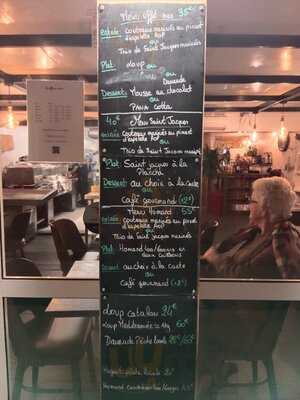 Menu effet mer 35€
entrée: couteaux marinés au piment
d'espelette
ou
Trio de Saint Jacques marinées
Plat: Loup ou
ou
Daurade
Dessert: Mousse au chocolat
ou
Panna Cotta
40€ Menu Saint Jacques
entrée couteaux marinés au piment
d'espelette
ou
Trio de Saint Jacques marinées
Plat Saint jacques à la
Plancha
Dessert au choix à la carte
ou
Café gourmand (+2€)
Menu Homard 55€
entrée couteaux marinés au piment
d'espelette ou
Trio de Saint Jacques marinées
Plat: Homard 400/600grs en
deux cuissons
Dessert au choix à la carte
ou
Café gourmand (+2€)
Loup catalan 24€
Loup Méditerranée 1kg 60€
Daurade Pêche locale